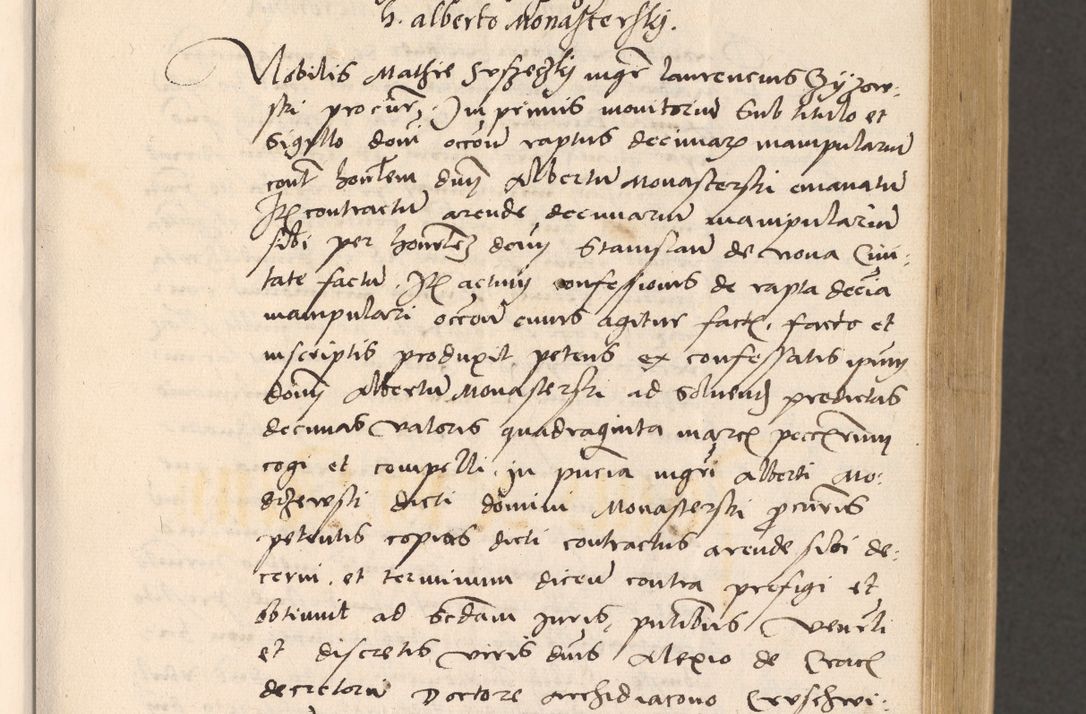 h. alberto Monasterskj.
Nobilis Mathie mgr laurencius
ski procur. Jn primis monitoriu sub titulo et
Sigillo dom occom raptus decimarum manipulariu
cont honlem dnm Albertu Monasterski emanatu
Jt contractu arende decimariu manipulariu
sibi per honorlem dnm Stanislau de nova Civi-
tate factu. Jt actum confessionis de rapta decia
manipulari occom cuius agitur fact. facto et
inscriptis produxit petens ex confessatis ipsum
dnm Albertu Monasterski ad solvend predictas
decimas valoris quadraginta marc pecuniarum
cogi et compelli. jn pncia mgri Alberti Mo-
drzewski dicti domini Monasterski procuris
petentis copias dicti contractus arende sibi de-
cerni. et terminum dicen contra prefigi et
obtinuit ad scdam juris, pntibus Venerli
et discretis viris dnis Alexio de Crac
decretoru Doctore Archidiacono Cruschwi-